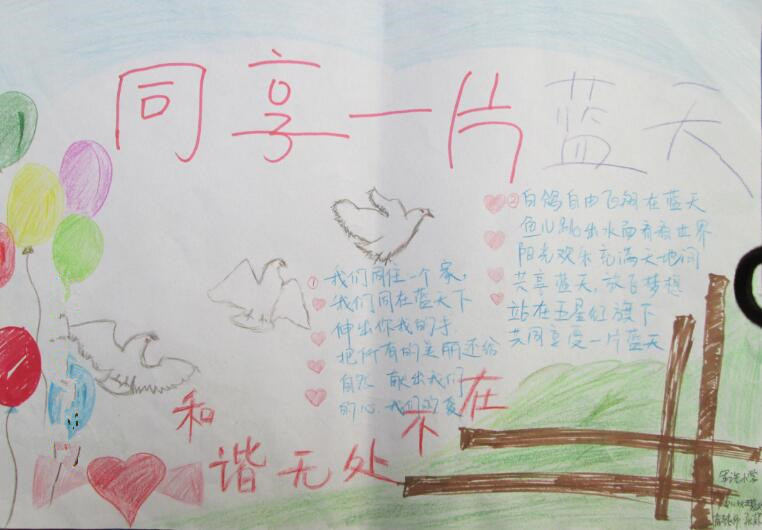 同享一片蓝天
①我们同住一个家,
我们同在蓝天下
伸出你我的手
把所有的美丽还给
自然 献出我们
的心 我们的爱
②白鸽自由飞翔在蓝天
鱼儿跳出水面看看世界
阳光欢乐充满天地间
共享蓝天,放飞梦想
站在五星红旗下
共同享受一片蓝天
和谐无处不在
小学